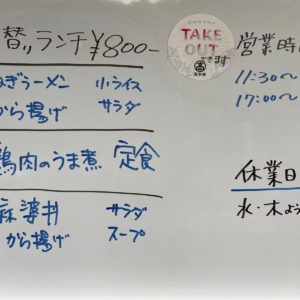 替リランチ¥800-
ねぎラーメン 小ライス
から揚げ サラダ
鶏肉のうま煮 定食
麻婆丼 サラダ
から揚げ スープ
TAKE
OUT
できます
営業時
11:30〜
17:00〜
休業日
水・木よう